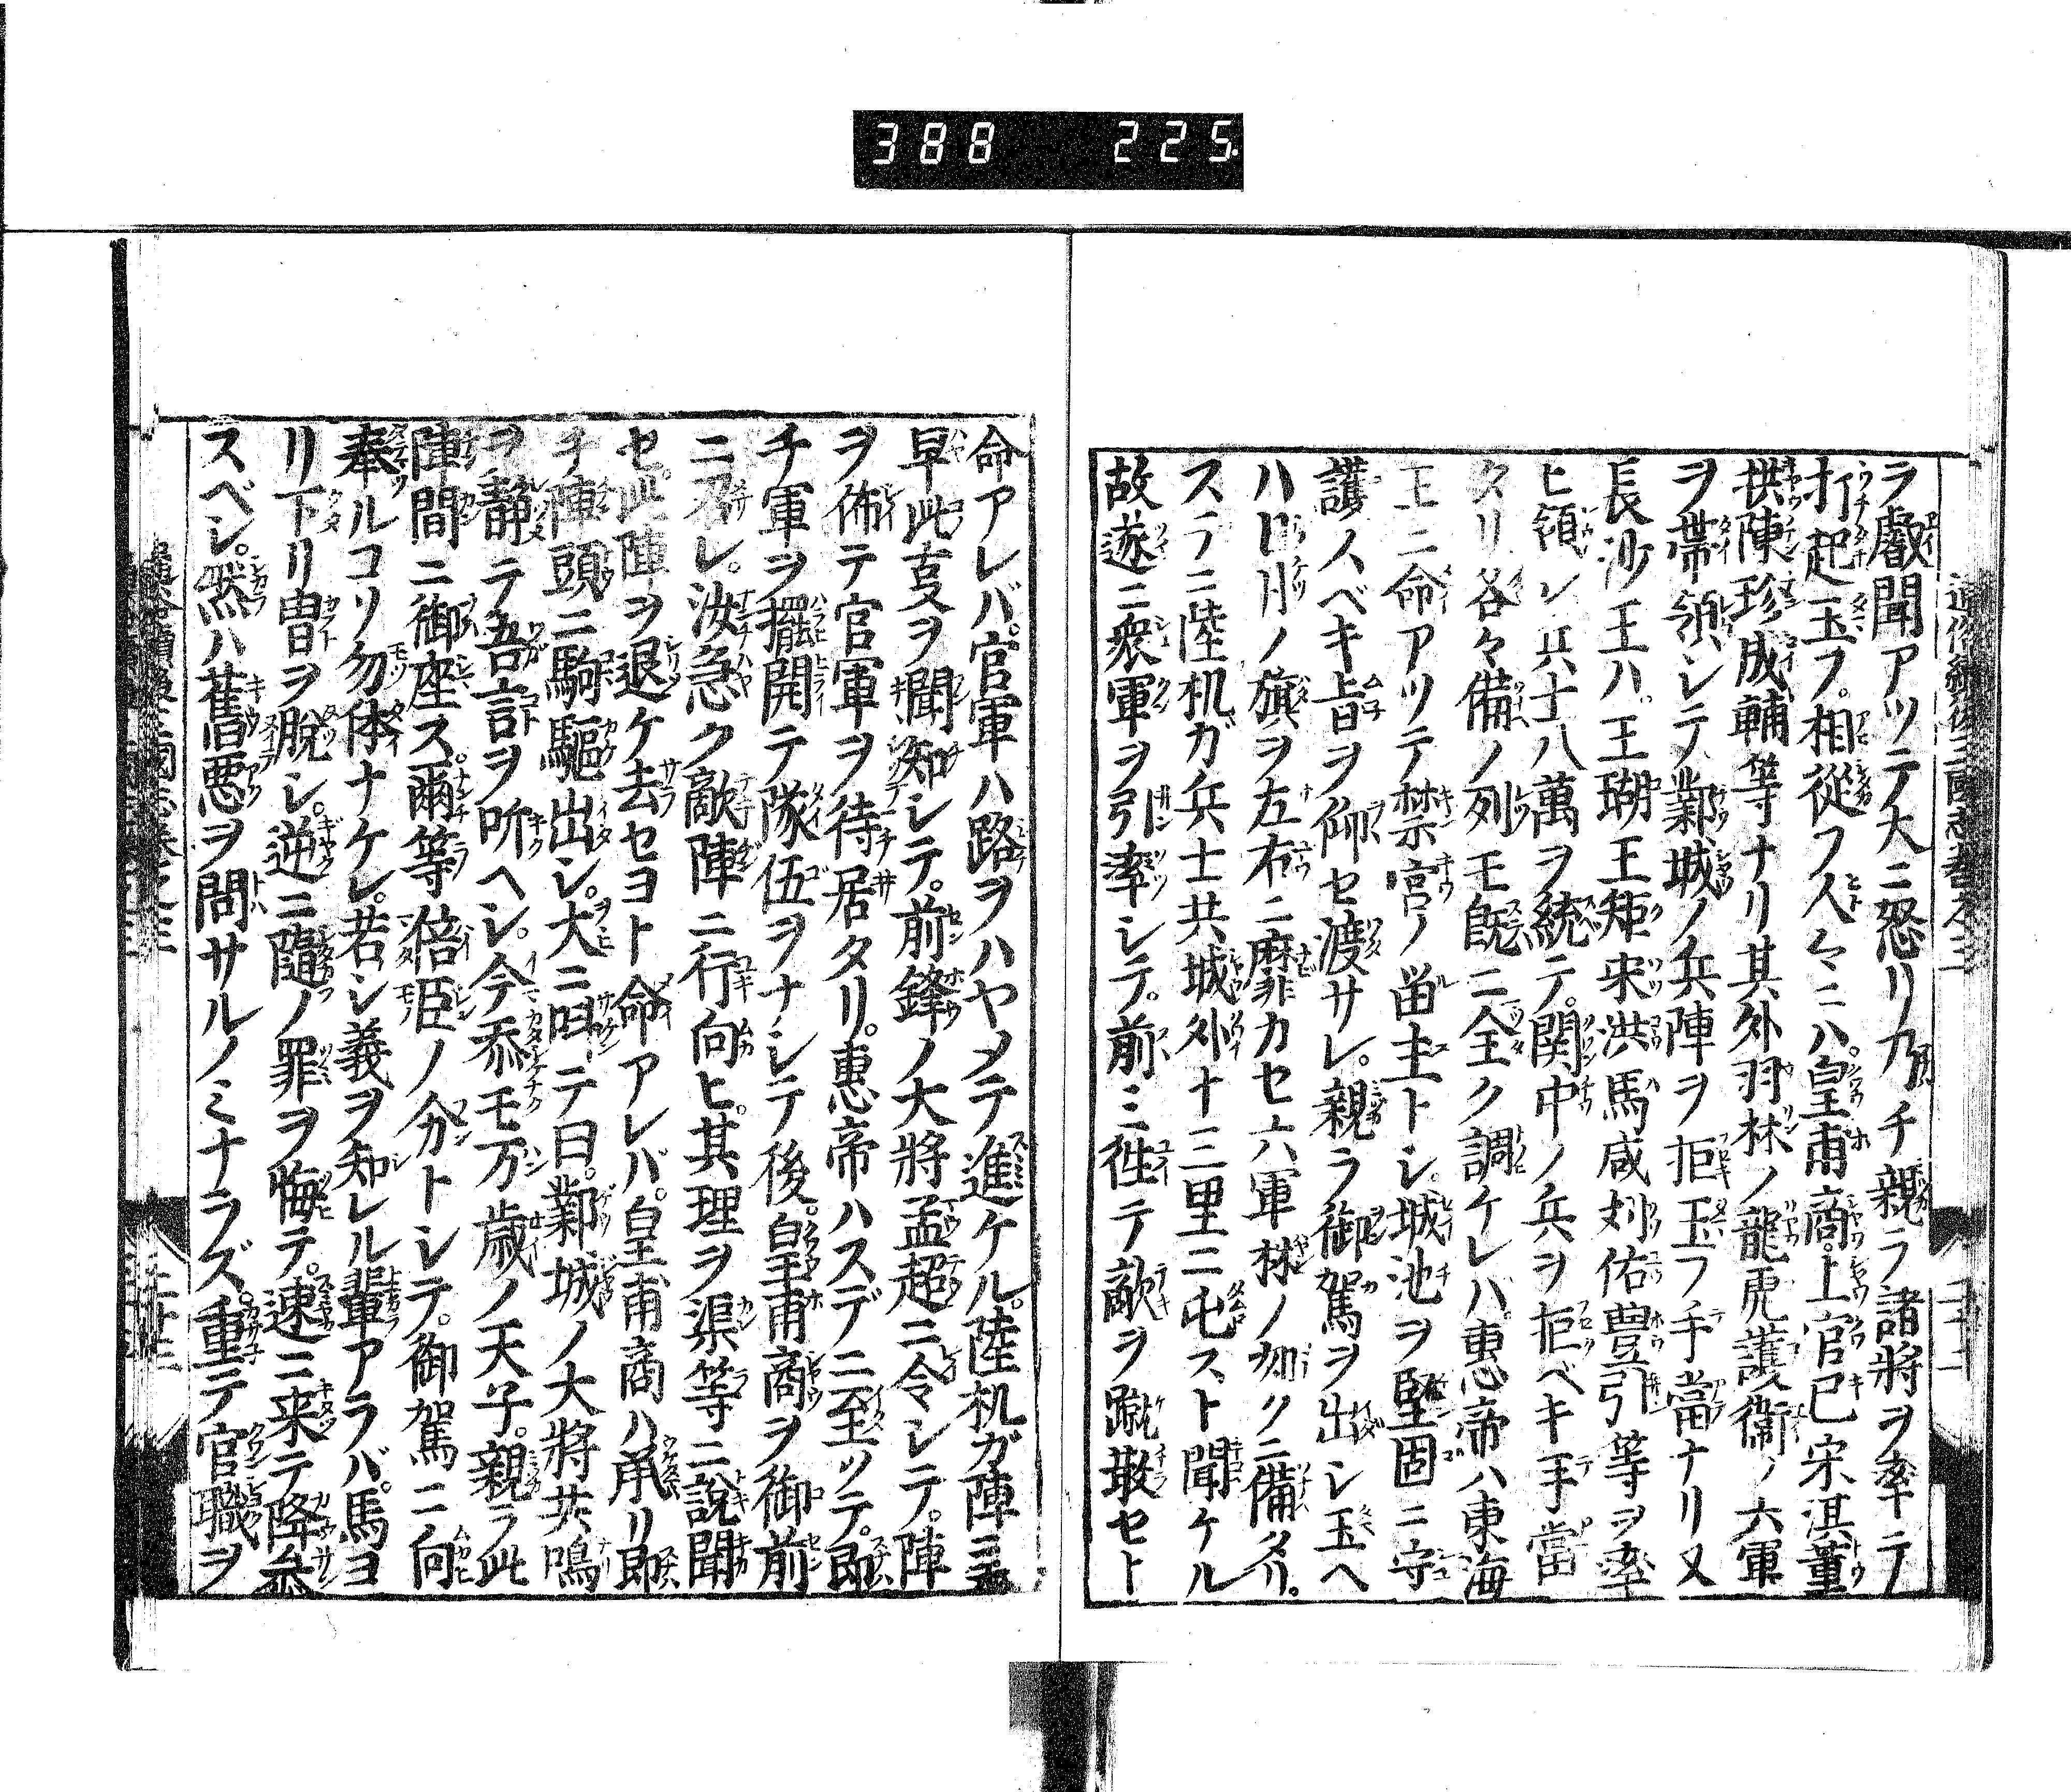 388 225
ラ叡聞アツテ大ニ怒リ乃チ親ラ諸將ヲ率ニテ
打起玉フ。相從フ人々ニハ。皇甫商。上官巳宋淇董
拱陳珍成輔等ナリ其外羽林ノ龍虎護衞ノ六軍
ヲ帯領シテ鄴城ノ兵陣ヲ拒玉フ手當ナリ又
長沙王ハ。王瑚王矩宋洪馬咸刘佑豊引等ヲ率
ヒ領シ兵士八萬ヲ統テ。関中ノ兵ヲ拒ベキ手當
タリ各々備ノ列モ既ニ全ク調ケレバ。惠帝ハ東海
王ニ命アツテ禁官ノ畄主トシ。城池ヲ堅固ニ守
護ノスベキ旨ヲ仰セ渡サレ。親ラ御駕ヲ出シ玉ヘ
ハ日月ノ旗ヲ左右ニ靡カセ六軍林ノ如クニ備タリ。
ステニ陸机ガ兵士共城外十三里ニ屯スト聞ケル
故遂ニ衆軍ヲ引率シテ。前ミ徃テ敵ヲ蹴散セト
命アレバ。官軍ハ路ヲハヤメテ進ケル。陸机ガ陣ニモ
早此叓ヲ聞知シテ。前鋒ノ大將孟超ニ令シテ。陣
ヲ佈テ官軍ヲ待居タリ。惠帝ハスデニ至ツテ。即
チ軍ヲ擺開テ隊伍ヲナシテ後。皇甫商ヲ御前
ニ召レ。汝急ク敵陣ニ行向ヒ。其理ヲ渠等ニ說聞
セ。此陣ヲ退ケ去セヨト命アレバ。皇甫商ハ承リ即
チ陣頭ニ駒驅出シ。大ニ呌テ曰。鄴城ノ大將共鳴
ヲ靜テ吾言ヲ听ヘシ。今忝モ万歳ノ天子。親ラ此
陣間ニ御座ス。爾等倍臣ノ分トシテ。御駕ニ向
奉ルコソ勿体ナケレ。若シ義ヲ知レル輩アラバ。馬ヨ
リ下リ冑ヲ脫シ。逆ニ隨ノ罪ヲ悔テ。速ニ来テ降參
スベシ。然ハ舊惡ヲ問サルノミナラズ。重テ官職ヲ